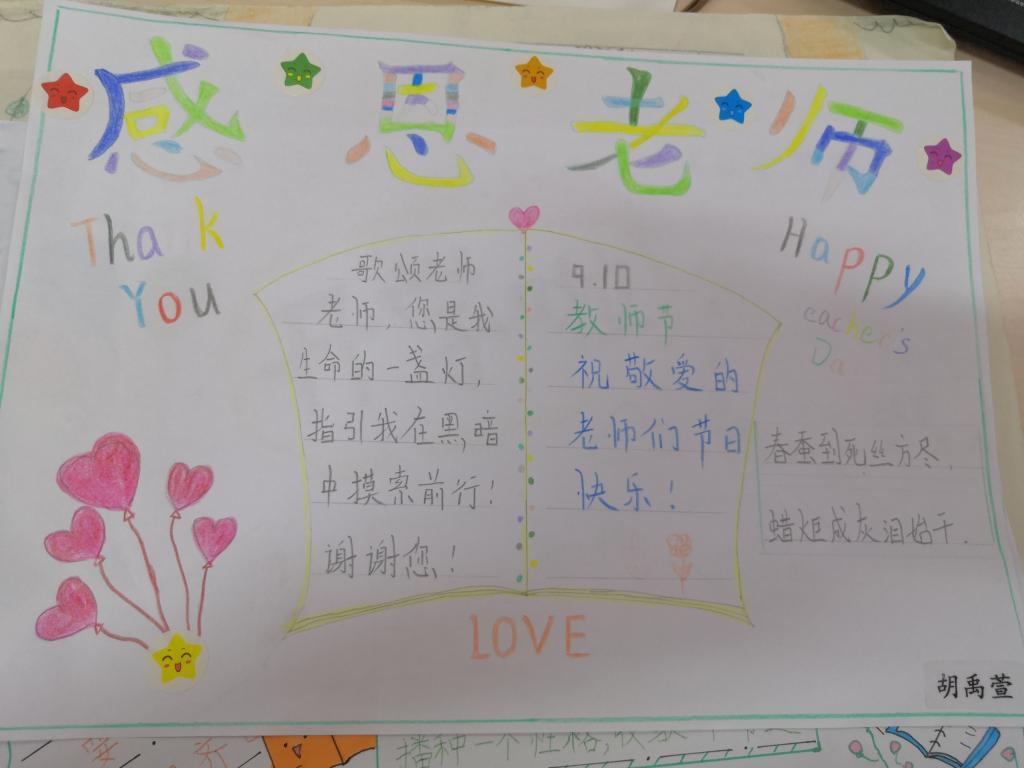 感恩老师
Thank
You
歌颂老师
老师，您是我
生命的一盏灯，
指引我在黑暗
中摸索前行！
谢谢您！
9.10
教师节
祝敬爱的
老师们节日
快乐！
Happy
eacher's
Da
春蚕到死丝方冬.
蜡炬成灰泪始干.
LOVE
胡禹萱
播种一个性格,收获